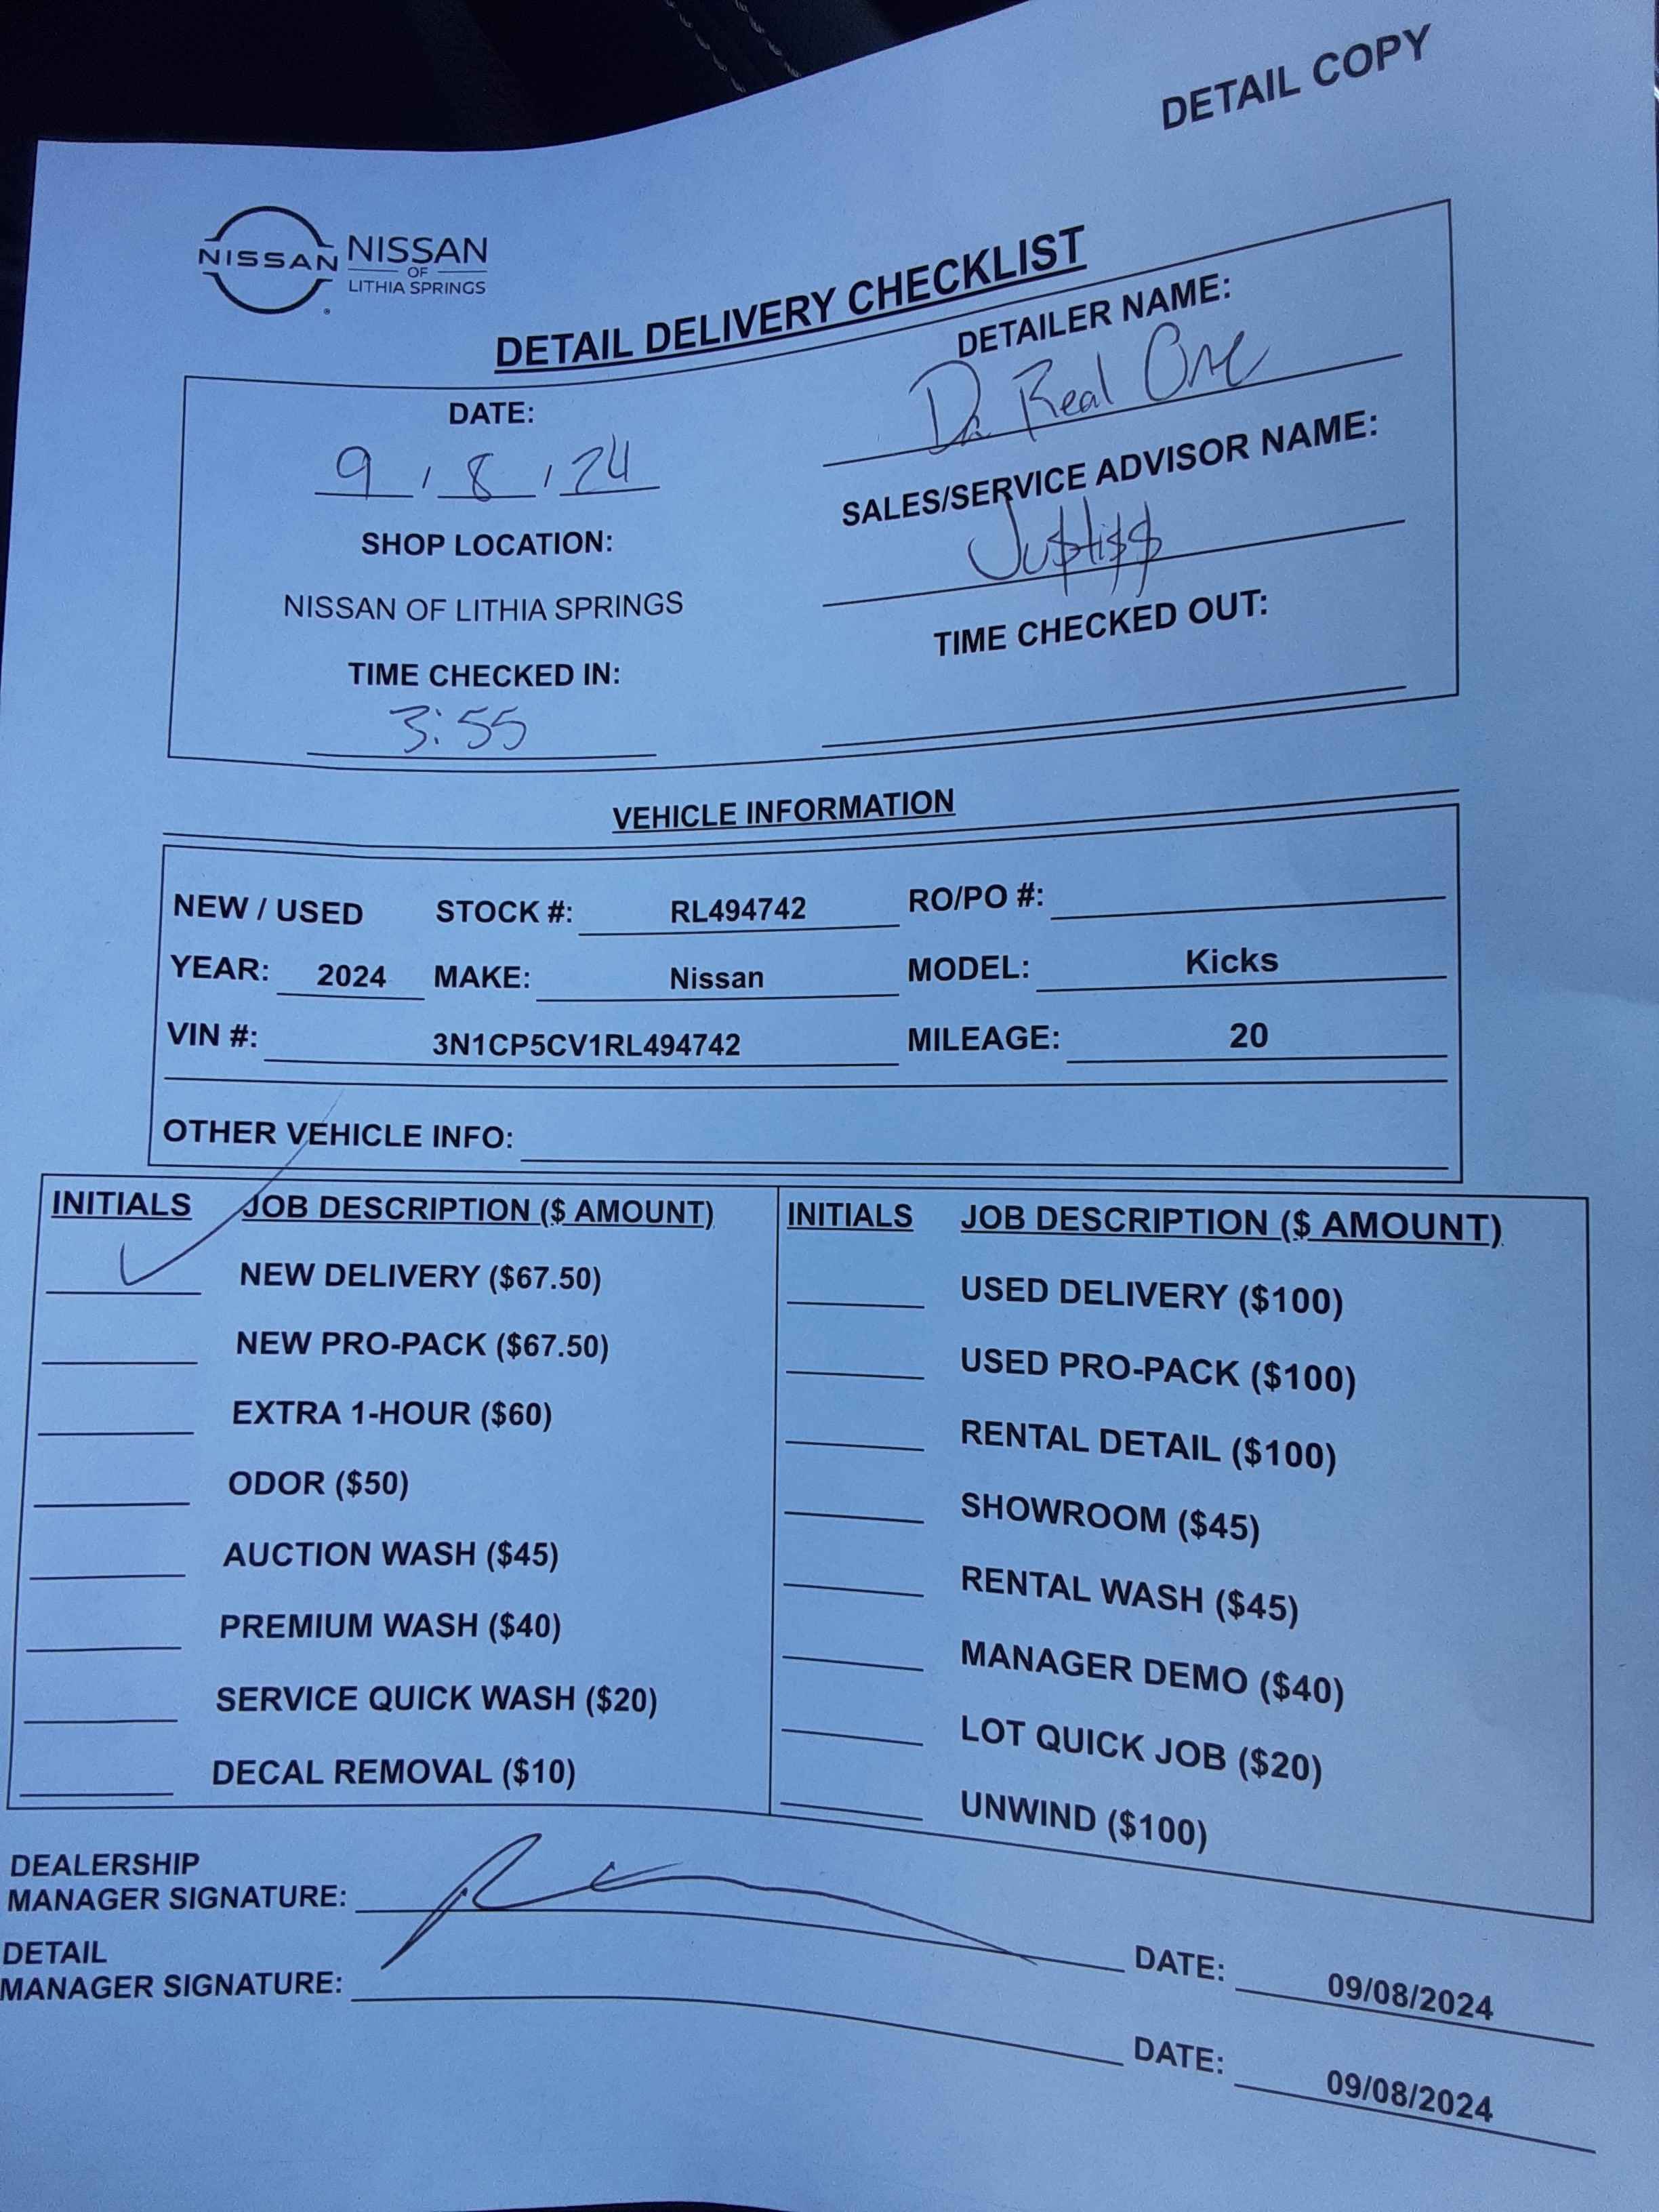 DETAIL COPY
NISSAN
NISSAN
OF
LITHIA SPRINGS
DETAIL DELIVERY CHECKLIST
DATE:
9 / 8 / 24
SHOP LOCATION:
NISSAN OF LITHIA SPRINGS
TIME CHECKED IN:
3:55
DETAILER NAME:
Da Real One
SALES/SERVICE ADVISOR NAME:
Ju$ti$$
TIME CHECKED OUT:
VEHICLE INFORMATION
NEW / USED STOCK #: RL494742 RO/PO #:
YEAR: 2024 MAKE: Nissan MODEL: Kicks
VIN #: 3N1CP5CV1RL494742 MILEAGE: 20
OTHER VEHICLE INFO:
INITIALS JOB DESCRIPTION ($ AMOUNT)
✓ NEW DELIVERY ($67.50)
NEW PRO-PACK ($67.50)
EXTRA 1-HOUR ($60)
ODOR ($50)
AUCTION WASH ($45)
PREMIUM WASH ($40)
SERVICE QUICK WASH ($20)
DECAL REMOVAL ($10)
INITIALS JOB DESCRIPTION ($ AMOUNT)
USED DELIVERY ($100)
USED PRO-PACK ($100)
RENTAL DETAIL ($100)
SHOWROOM ($45)
RENTAL WASH ($45)
MANAGER DEMO ($40)
LOT QUICK JOB ($20)
UNWIND ($100)
DEALERSHIP
MANAGER SIGNATURE: DATE: 09/08/2024
DETAIL
MANAGER SIGNATURE: DATE: 09/08/2024